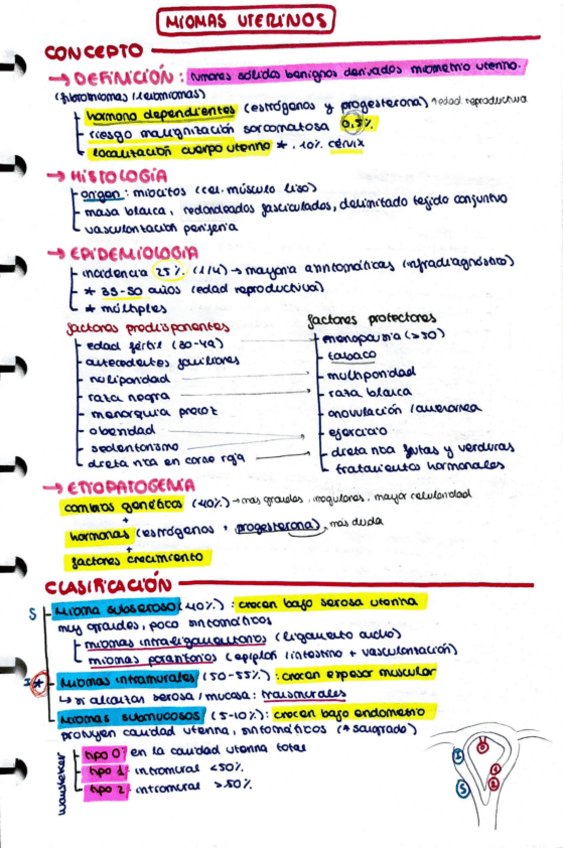 MIOMAS UTERINOS
CONCEPTO
→ DEFINICIÓN: tumores sólidos benignos derivados miometrio uterino.
(fibromiomas / leiomiomas)
hormono dependientes (estrógenos y progesterona) ↑edad reproductiva
riesgo malignización sarcomatosa 0,5%
localización cuerpo uterino *. 10% cérvix
→ HISTOLOGÍA
origen: miocitos (cel. músculo liso)
masa blanca, redondeados fasciculados, delimitado tejido conjuntivo
vascularización periferia
→ EPIDEMIOLOGIA
incidencia 25% (1/4) → mayoría asintomáticas (infradiagnóstico)
* 35-50 años (edad reproductiva)
* múltiples
factores predisponentes
edad fértil (30-49)
antecedentes familiares
nuliparidad
raza negra
menarquia precoz
obesidad
sedentarismo
dieta rica en carne roja
factores protectores
menopausia (>50)
tabaco
multiparidad
raza blanca
anovulación / amenorrea
ejercicio
dieta rica frutas y verduras
tratamientos hormonales
→ ETIOPATOGENIA
cambios genéticos (40%) → mas grandes, irregulares, mayor celularidad
+
hormonas (estrógenos + progesterona), mas duda
+
factores crecimiento
CLASIFICACIÓN
S Mioma subseroso (40%): crecen bajo serosa uterina
muy grandes, poco sintomáticos
miomas intraligamentarios (ligamento ancho)
miomas parasitarios (epiplon / intestino + vascularización)
I * Miomas intramurales (50-55%): crecen espesor muscular
↳ si alcanzan serosa / mucosa: transmurales
Miomas submucosos (5-10%): crecen bajo endometrio
protuyen cavidad uterina, sintomáticos (* sangrado)
wamsteker
tipo 0: en la cavidad uterina total
tipo 1: intramural <50%
tipo 2: intramural >50%
0
I
1
S
2